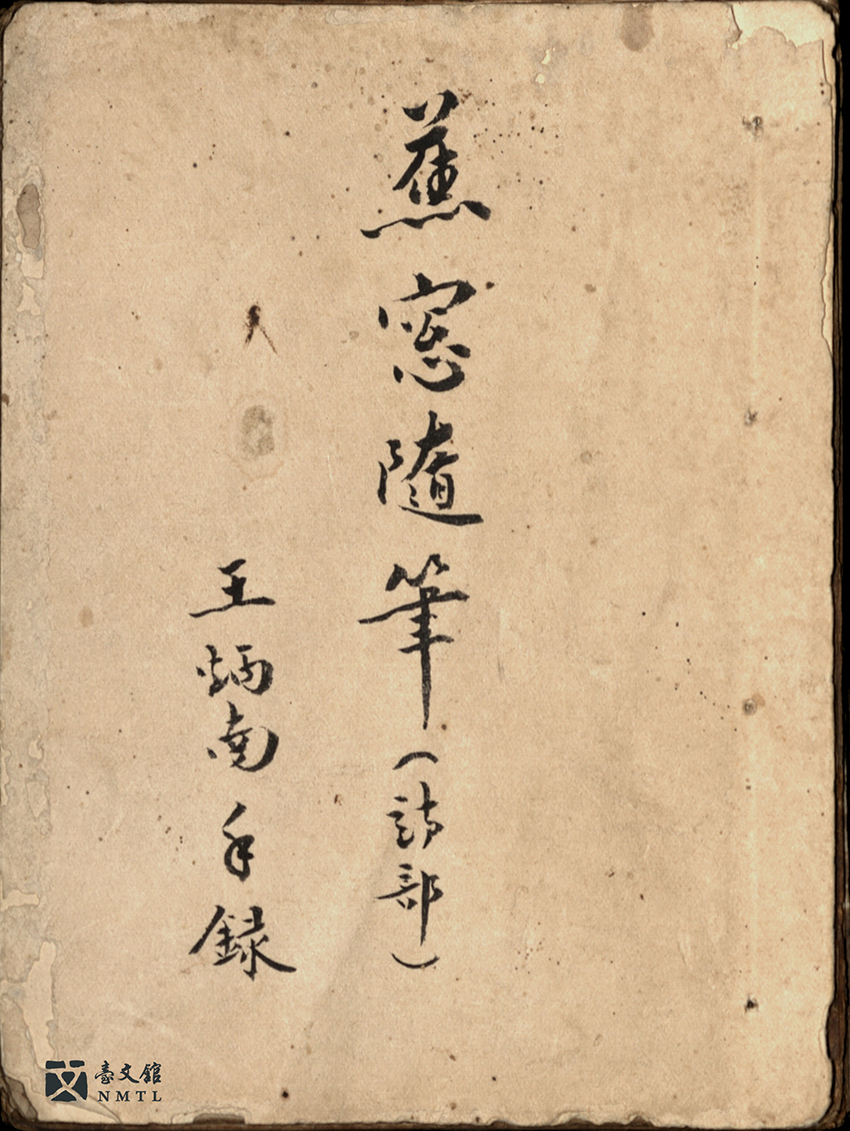 蕉窓隨筆（詩部）
王炳南手錄
臺文館
NMTL